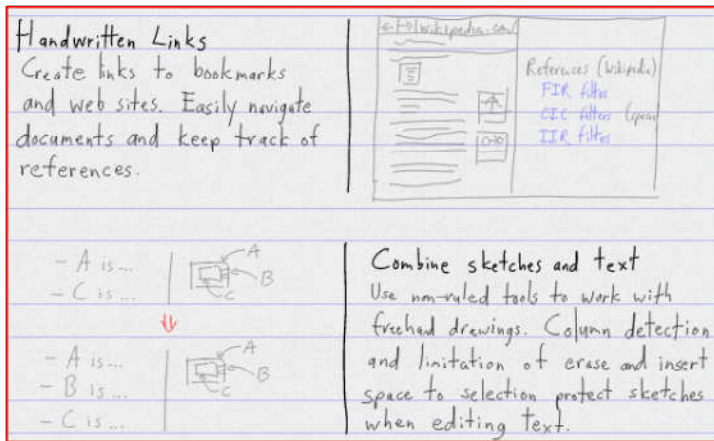 Handwritten Links
Create links to bookmarks
and web sites. Easily navigate
documents and keep track of
references.
wikipedia.com/
References (Wikipedia)
FIR filter
CIC filters
IIR filter
- A is...
- C is...
A
B
C
- A is...
- B is...
- C is...
A
B
C
Combine sketches and text
Use non-ruled tools to work with
freehad drawings. Column detection
and limitation of erase and insert
space to selection protect sketches
when editing text.